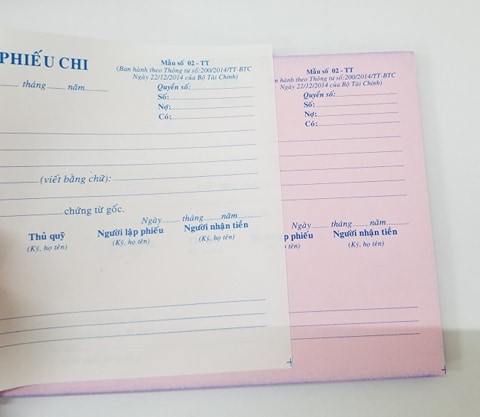 PHIẾU CHI
tháng năm
Mẫu số 02 - TT
(Ban hành theo Thông tư số:200/2014/TT-BTC
Ngày 22/12/2014 của Bộ Tài Chính)
Quyển số:
Số:
Nợ:
Có:
(viết bằng chữ):
chứng từ gốc.
Ngày tháng năm
Thủ quỹ
(Ký, họ tên)
Người lập phiếu
(Ký, họ tên)
Người nhận tiền
(Ký, họ tên)
Mẫu số 02 - TT
hành theo Thông tư số:200/2014/TT-BTC
Ngày 22/12/2014 của Bộ Tài Chính)
Quyển số:
Số:
Nợ:
Có:
Ngày tháng năm
phiếu
họ tên)
Người nhận tiền
(Ký, họ tên)